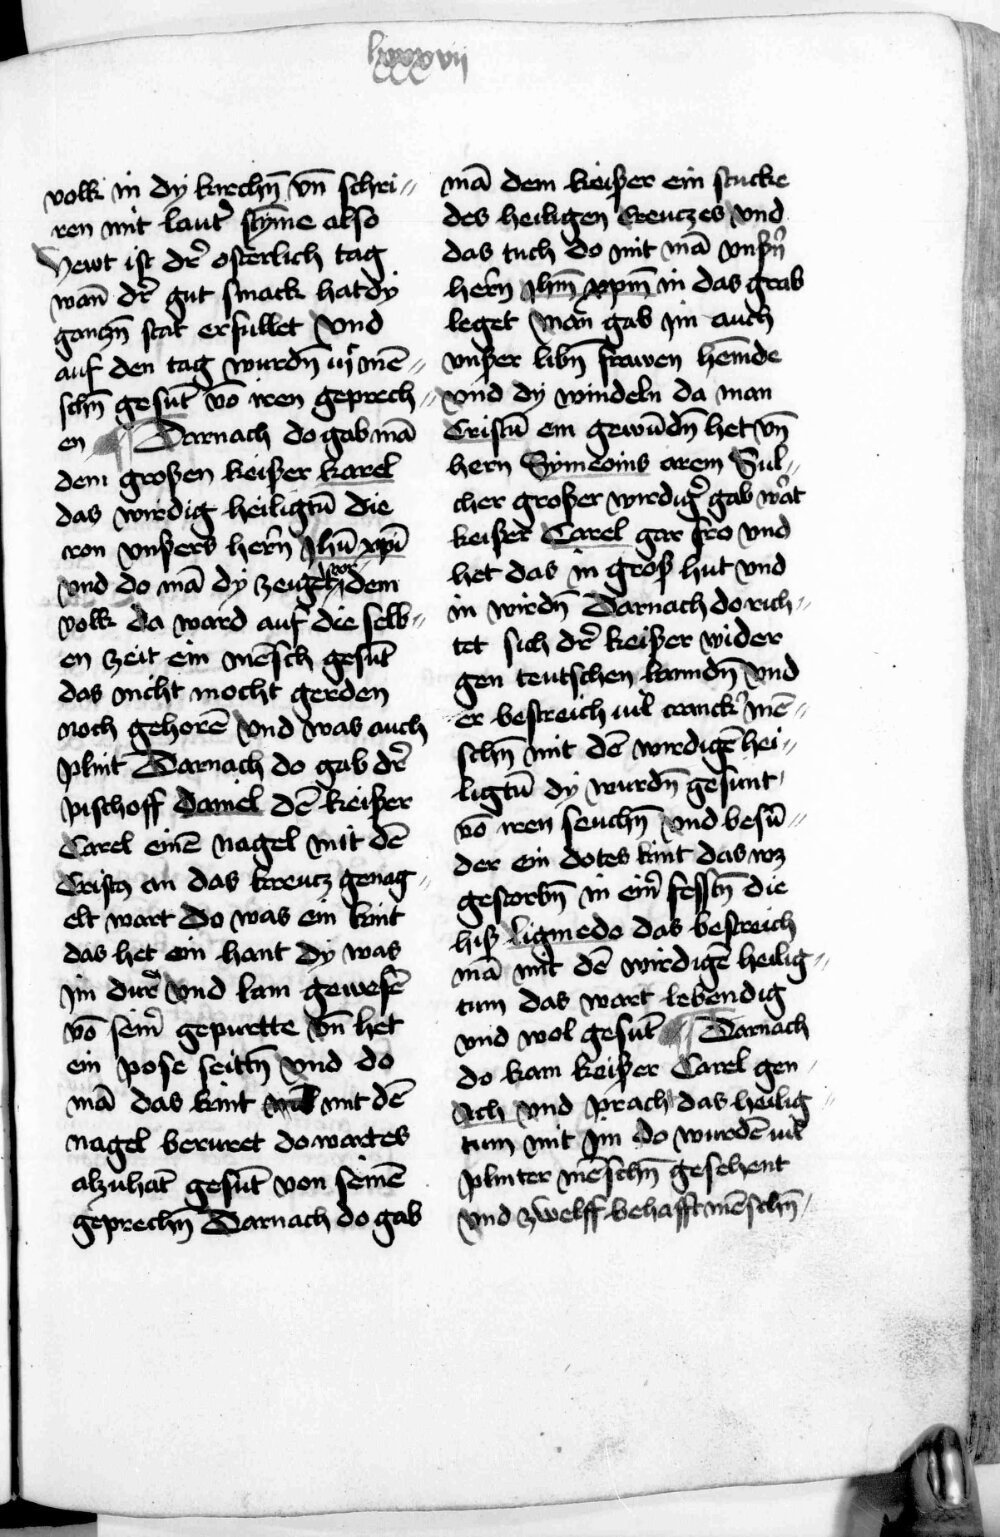 lxxxvii
volk in dy kirchn̄ vn̄ schri⸗
ren mit laut᷑ stȳme also
Hewt ist dr᷑ osterlich tag
wan̄ dr᷑ gut smack hat dy
gancz̄n stat erfullet Vnd
auf den tag wurdn̄ iijͨ mē⸗
schn̄ gesūt vō iren geprech⸗
en Darnach do gab mā
dem großen keißer karel
das wirdig heiligtū die
cron vnßers hern̄ Jhū xpī
vnd do mā dy zeuget vor dem
volk da ward auf die selb⸗
en zeit ein mēsch gesūt
das nicht mocht gerden
noch gehorē Vnd was auch
plint Darnach do gab dr᷑
pischoff Daniel dē keißer
Carel einē nagel mit dē
Cristꝫ an das kreucz genag⸗
elt wart Do was ein kint
das het ein hant dy was
jm dur᷑ Vnd lam gewesē
vō seim᷑ gepurtte vn̄ het
ein pose seittn̄ Vnd do
mā das kint mit dē
nagel beruret do wart es
alzuhāt gesūt von seinē
geprechn̄ Darnach do gab
mā dem keißer ein stucke
des heiligen Creuczes Vnd
das tuch do mit mā vnßn᷑
hern̄ Jhm̄ xpm̄ in das grab
leget Man̄ gab jm auch
vnßer libn̄ frawen hēmde
vnd dy windeln da man
Cristū ein gewūdn̄ het vn̄
hern Symeoins arem Sul⸗
cher großer wirdig᷑ gab w᷑at
keißer Carel gar fro vnd
het das in groß hut vnd
in wirdn̄ Darnach do rich⸗
tet sich dr᷑ keißer wider
gen teutschen lanndn̄ Vnd
er bestreich vil kranck᷑ mē⸗
schn̄ mit dē wirdigē hei⸗
ligtū dy wurdn̄ gesunt
vō iren seuchn̄ Vnd besū⸗
der ein dotes kint das wz
gestorbn̄ in ein᷑ festtn̄ die
hiß Ligmedo das bestreich
mā mit dē wirdigē heilig⸗
tum das wart lebendig
vnd wol gesūt Darnach
do kam keißer Carel gen
Ach vnd prach das heilig
tum mit jm Do wurdē vil
plinter mēschn̄ gesehent
Vnd zwelff behafft mēschn̄